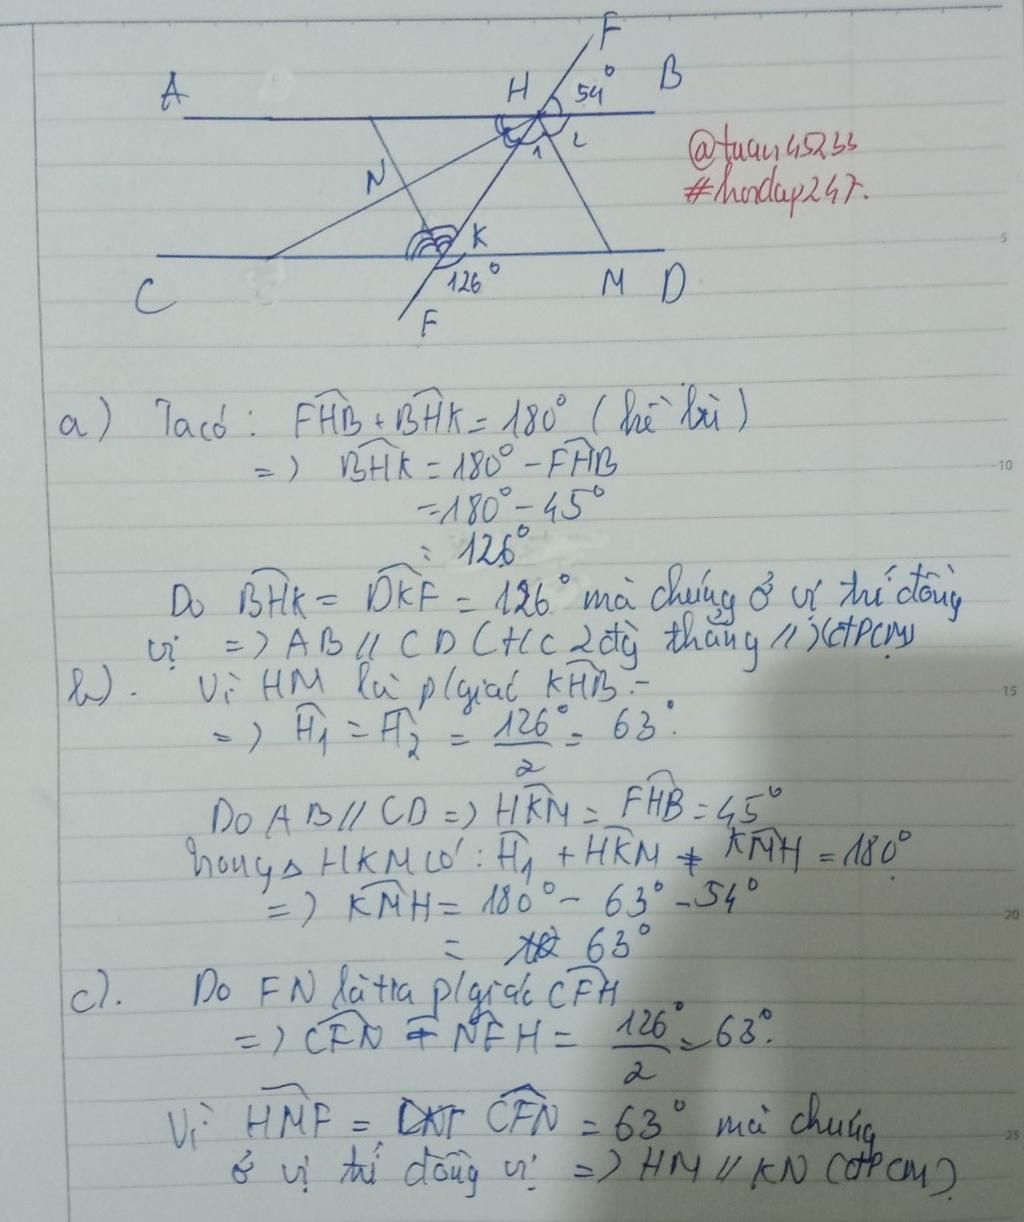 F
A H 54° B
1 2
N
K
C 126° M D
F
@tuan45233
#hoidap247.
5
a) Ta có: FHB + BHK = 180° (kề bù)
=> BHK = 180° - FHB
10
= 180° - 45°
= 126°
Do BHK = DKF = 126° mà chúng ở vị trí đồng
vị => AB // CD (t/c 2 đg thẳng //) (đPCM)
b). Vì HM là p/giác KHB.
15
=> H1 = H2 = 126°/2 = 63°.
Do AB // CD => HKM = FHB = 45°
Trong Δ HKM có: H1 + HKM + KMH = 180°
=> KMH = 180° - 63° - 54°
20
= 63°
c). Do FN là tia p/giác CFH
=> CFN = NFH = 126°/2 = 63°.
Vì HMF = CFN = 63° mà chúng
25
ở vị trí đồng vị => HM // KN (đPCM)